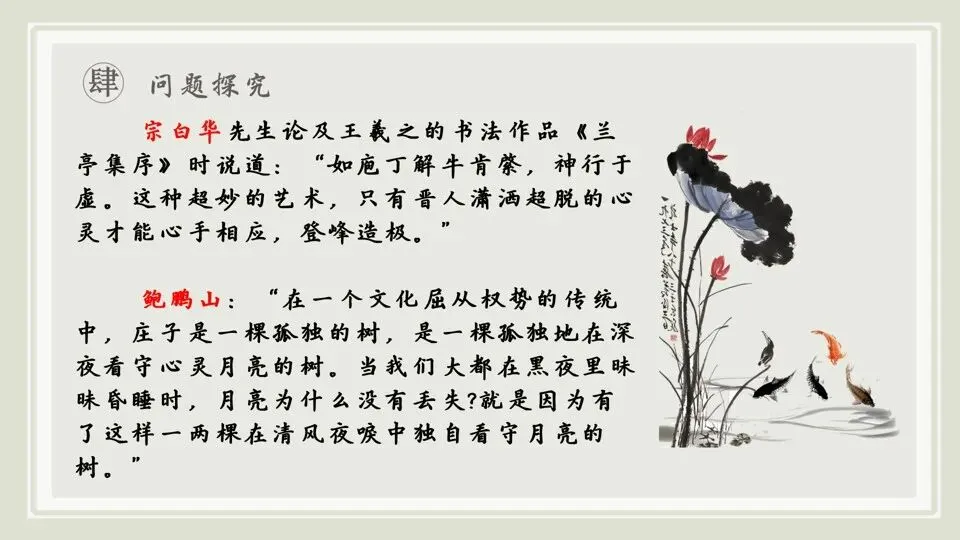 肆 问题探究
宗白华先生论及王羲之的书法作品《兰
亭集序》时说道：“如庖丁解牛肯綮，神行于
虚。这种超妙的艺术，只有晋人潇洒超脱的心
灵才能心手相应，登峰造极。”
鲍鹏山：“在一个文化屈从权势的传统
中，庄子是一棵孤独的树，是一棵孤独地在深
夜看守心灵月亮的树。当我们大都在黑夜里昧
昧昏睡时，月亮为什么没有丢失?就是因为有
了这样一两棵在清风夜唳中独自看守月亮的
树。”